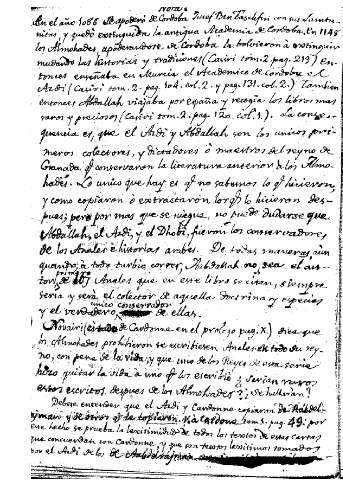 Notas
En el año 1086 se apoderó de Cordoba Jusef Ben Taschfin con sus
y quedó extinguida la antigua Academia de Cordoba. En 1148
los Almohades, apoderandose de Cordoba la bolvieron à extinguir
mudando las historias y tradiciones (Casiri tom. 2. pag. 219) En-
tonces enseñaba en Murcia el Academico de Cordoba el
Azdi (Casiri tom. 2. pag. 104. col. 2. y pag. 131. col. 2.) Tambien
entonces Abdallah viajaba por españa y recogia los libros mas
raros y preciosos (Casiri tom. 2. pag. 120. col. 1.) La conse-
quencia es, que el Azdi y Abdallah, son los unicos pri-
meros colectores, y dictadores ò maestros del reyno de
Granada, q̃ conservaron la literatura anterior à los Almo-
hades. Lo unico que hay es q̃ no sabemos lo q̃ hicieron,
y como copiaron ò extractaron los q̃ lo hicieron des-
pues; pero por mas que se niegue, no puede dudarse que
Abdallah, el Azdi, y el Dhobi, fueron los conservadores
de los Anales è historias arabes. De todas maneras, aun
quando, à todo turbio correr, Abdallah no sea el au-
tor de los Anales que en este libro se citan, siempre
seria y será el colector de aquella doctrina y especies
unico conservador
y el verdadero de ellas.
Novairi (citado de Cardonne en el prologo pag. X.) dice que
los Almohades prohibieron se escribiesen Anales de todo su rey-
no, con pena de la vida; y que uno de los Reyes de esta serie
hizo quitar la vida à uno q̃ los escribió. ¿Serian raros
estos escritos despues de los Almohades? ¿se hallarian?
Debese entender que el Azdi y Cardonne copiaron de
y de otros q̃ le copiaron. Cardonne tom. 1. pag. 49: por
ese hecho se prueba la lexitimidad de todos los textos de estas cartas
que concuerdan con Cardonne, y que son textos lexitimos tomados
por el Azdi de los de